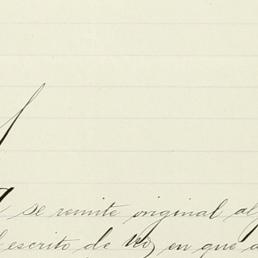 se remite original al
escrito de no, en que